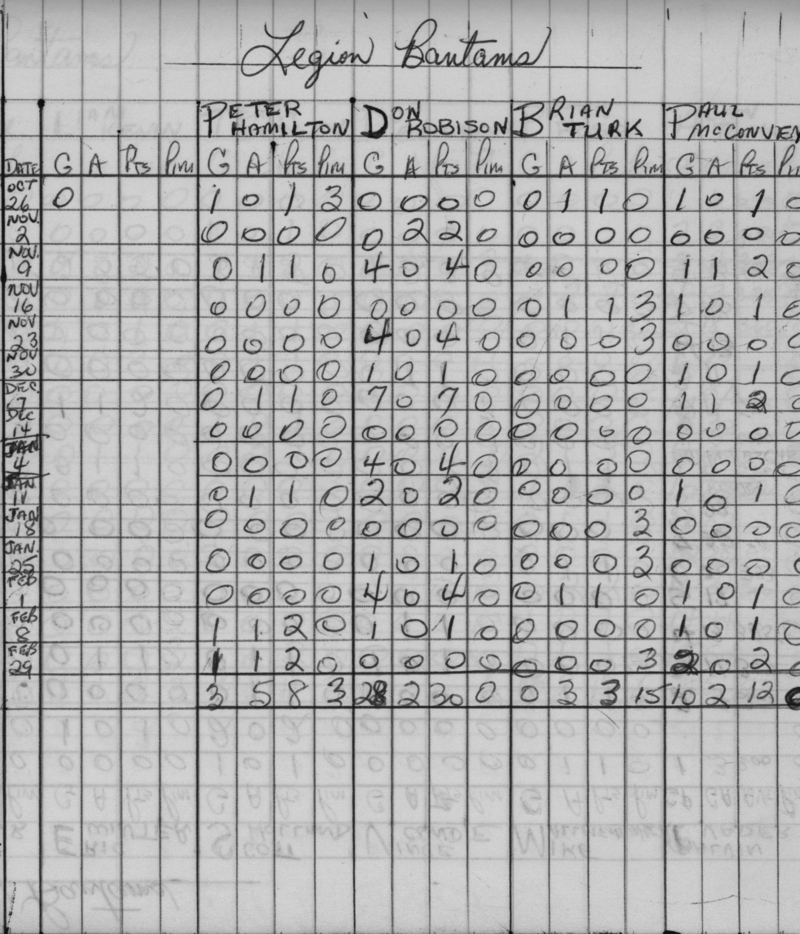 Legion Bantams
PETER HAMILTON DON ROBISON BRIAN TURK PAUL McCONVEN
DATE G A Pts Pim G A Pts Pim G A Pts Pim G A Pts Pim G A Pts Pi
OCT 26 0 1 0 1 3 0 0 0 0 0 1 1 0 1 0 1 0
NOV. 2 0 0 0 0 0 2 2 0 0 0 0 0 0 0 0 0
NOV. 9 0 1 1 0 4 0 4 0 0 0 0 0 1 1 2 0
NOV 16 0 0 0 0 0 0 0 0 0 1 1 3 1 0 1 0
NOV 23 0 0 0 0 4 0 4 0 0 0 0 3 0 0 0 0
NOV 30 0 0 0 0 1 0 1 0 0 0 0 0 1 0 1 0
DEC 7 0 1 1 0 7 0 7 0 0 0 0 0 1 1 2 0
DEC 14 0 0 0 0 0 0 0 0 0 0 0 0 0 0 0 0
JAN 4 0 0 0 0 4 0 4 0 0 0 0 0 0 0 0 0
JAN 11 0 1 1 0 2 0 2 0 0 0 0 0 1 0 1 0
JAN 18 0 0 0 0 0 0 0 0 0 0 0 3 0 0 0 0
JAN. 25 0 0 0 0 1 0 1 0 0 0 0 3 0 0 0 0
FEB 1 0 0 0 0 4 0 4 0 0 1 1 0 1 0 1 0
FEB 8 1 1 2 0 1 0 1 0 0 0 0 0 1 0 1 0
FEB 29 1 1 2 0 0 0 0 0 0 0 0 3 2 0 2 0
3 5 8 3 28 2 30 0 0 3 3 15 10 2 12 0